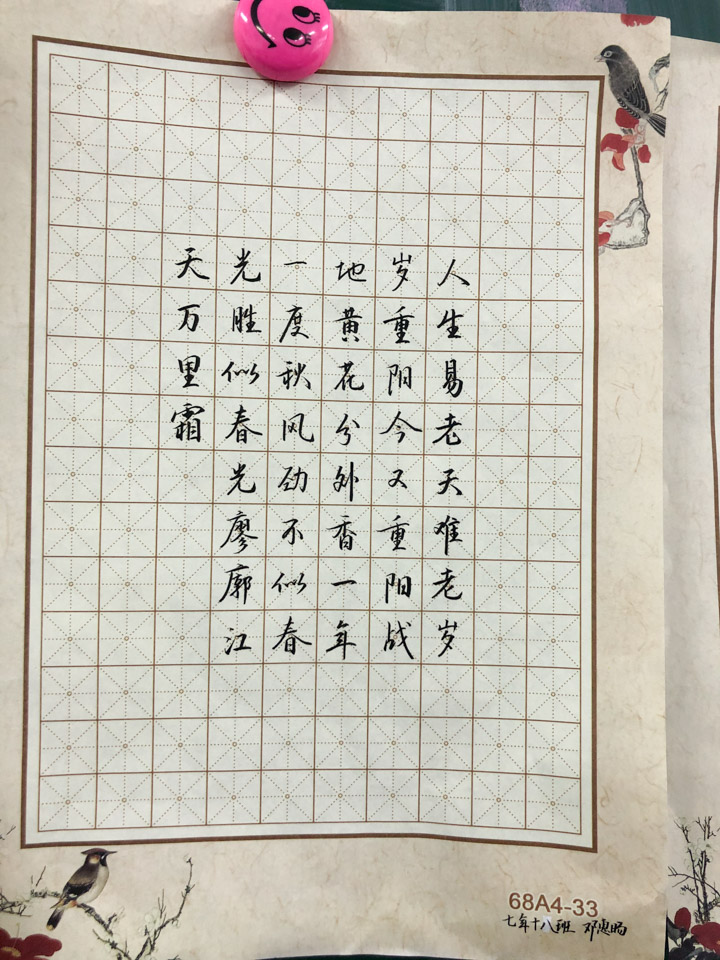 人生易老天难老岁
岁重阳今又重阳战
地黄花分外香一年
一度秋风劲不似春
光胜似春光廖廓江
天万里霜
68A4-33
七年十八班